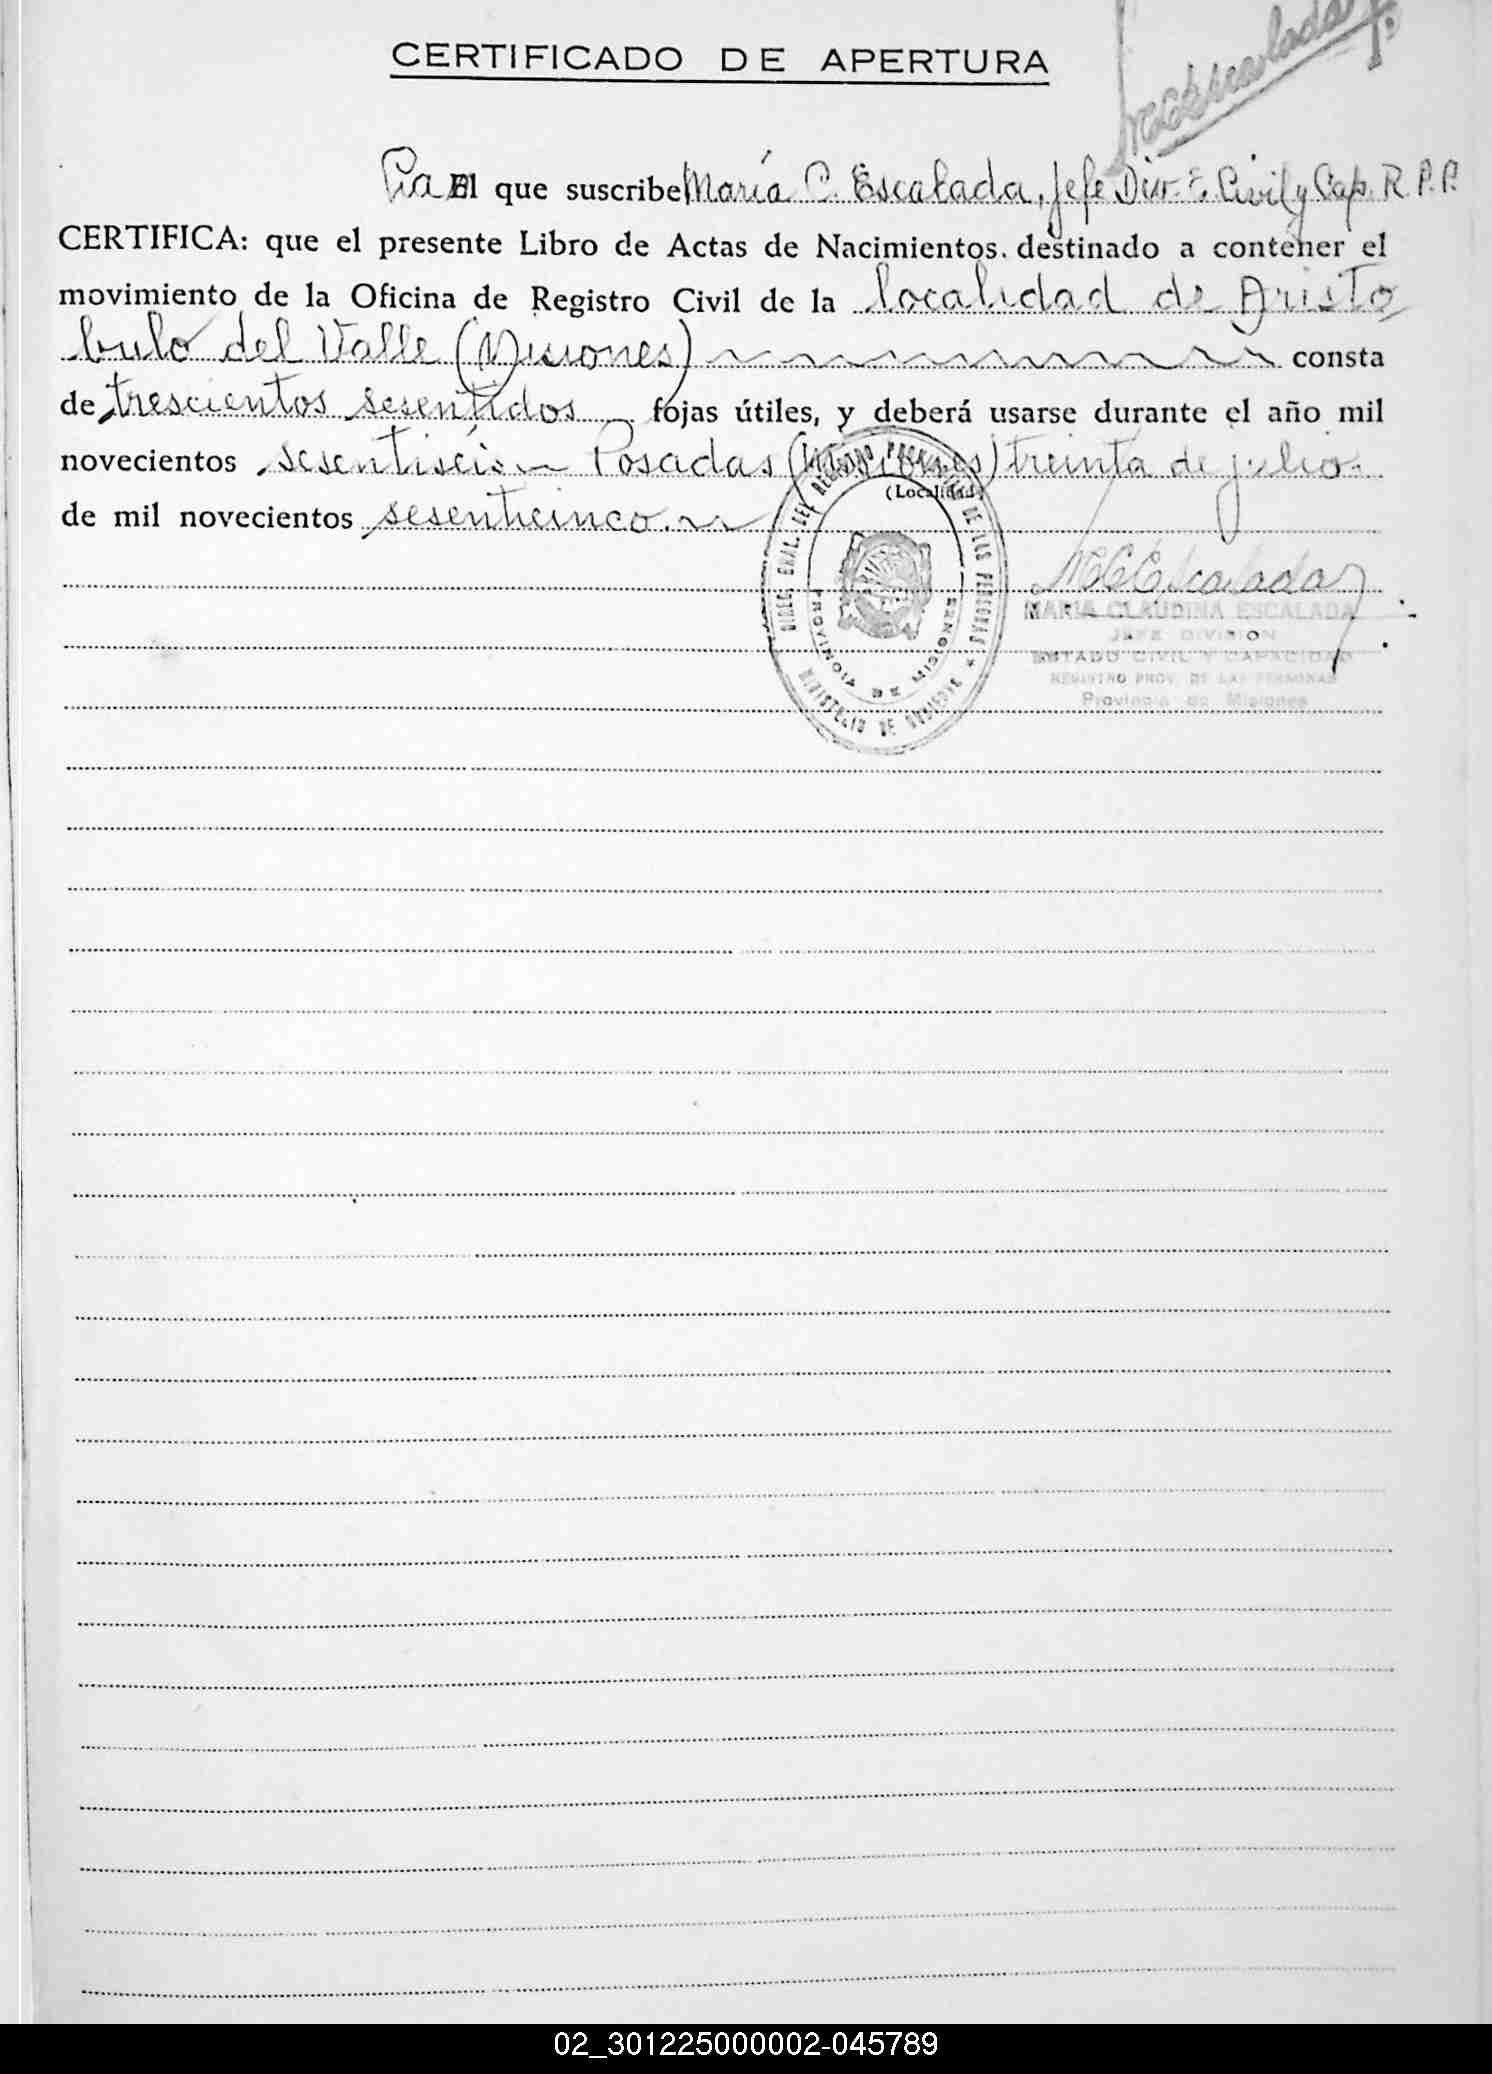 CERTIFICADO DE APERTURA
MCEscalada
La El que suscribe María C. Escalada, Jefe Div. E. Civil y Cap. R. P. P.
CERTIFICA: que el presente Libro de Actas de Nacimientos. destinado a contener el
movimiento de la Oficina de Registro Civil de la localidad de Aristo
bulo del Valle (Misiones) consta
de trescientos sesentidos fojas útiles, y deberá usarse durante el año mil
novecientos sesentiséis Posadas (Misiones) treinta de julio
(Localidad)
de mil novecientos sesenticinco.
DIREC. GRAL. DEL REGISTRO PROVINCIAL DE LAS PERSONAS
PROVINCIA DE MISIONES
MINISTERIO DE GOBIERNO
MCEscalada
MARIA CLAUDINA ESCALADA
JEFE DIVISION
ESTADO CIVIL Y CAPACIDAD
REGISTRO PROV. DE LAS PERSONAS
Provincia de Misiones
02_301225000002-045789